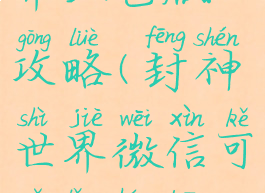 gōng lüè fēng shén
攻略(封神
shì jiè wēi xìn kě
世界微信可